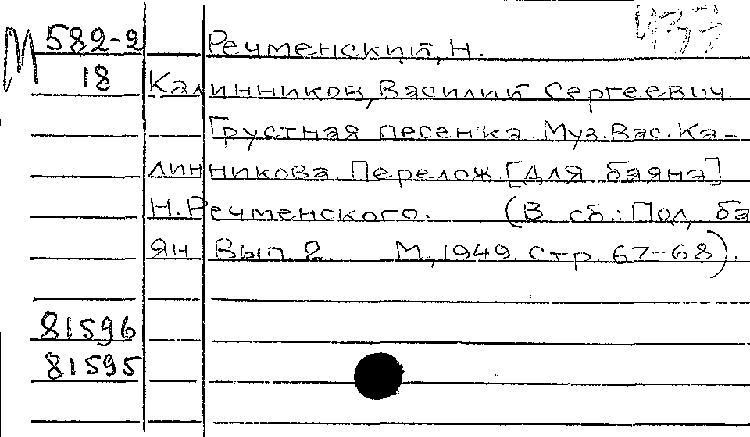 М 582-2 Речменский, Н. 437
18 Калинников, Василий Сергеевич
Грустная песенка. Муз. Вас. Ка-
линникова. Перелож. [для баяна]
Н. Речменского. (В сб.: Пол. ба
ян Вып 2 М., 1949 стр. 67-68).
81596
81595